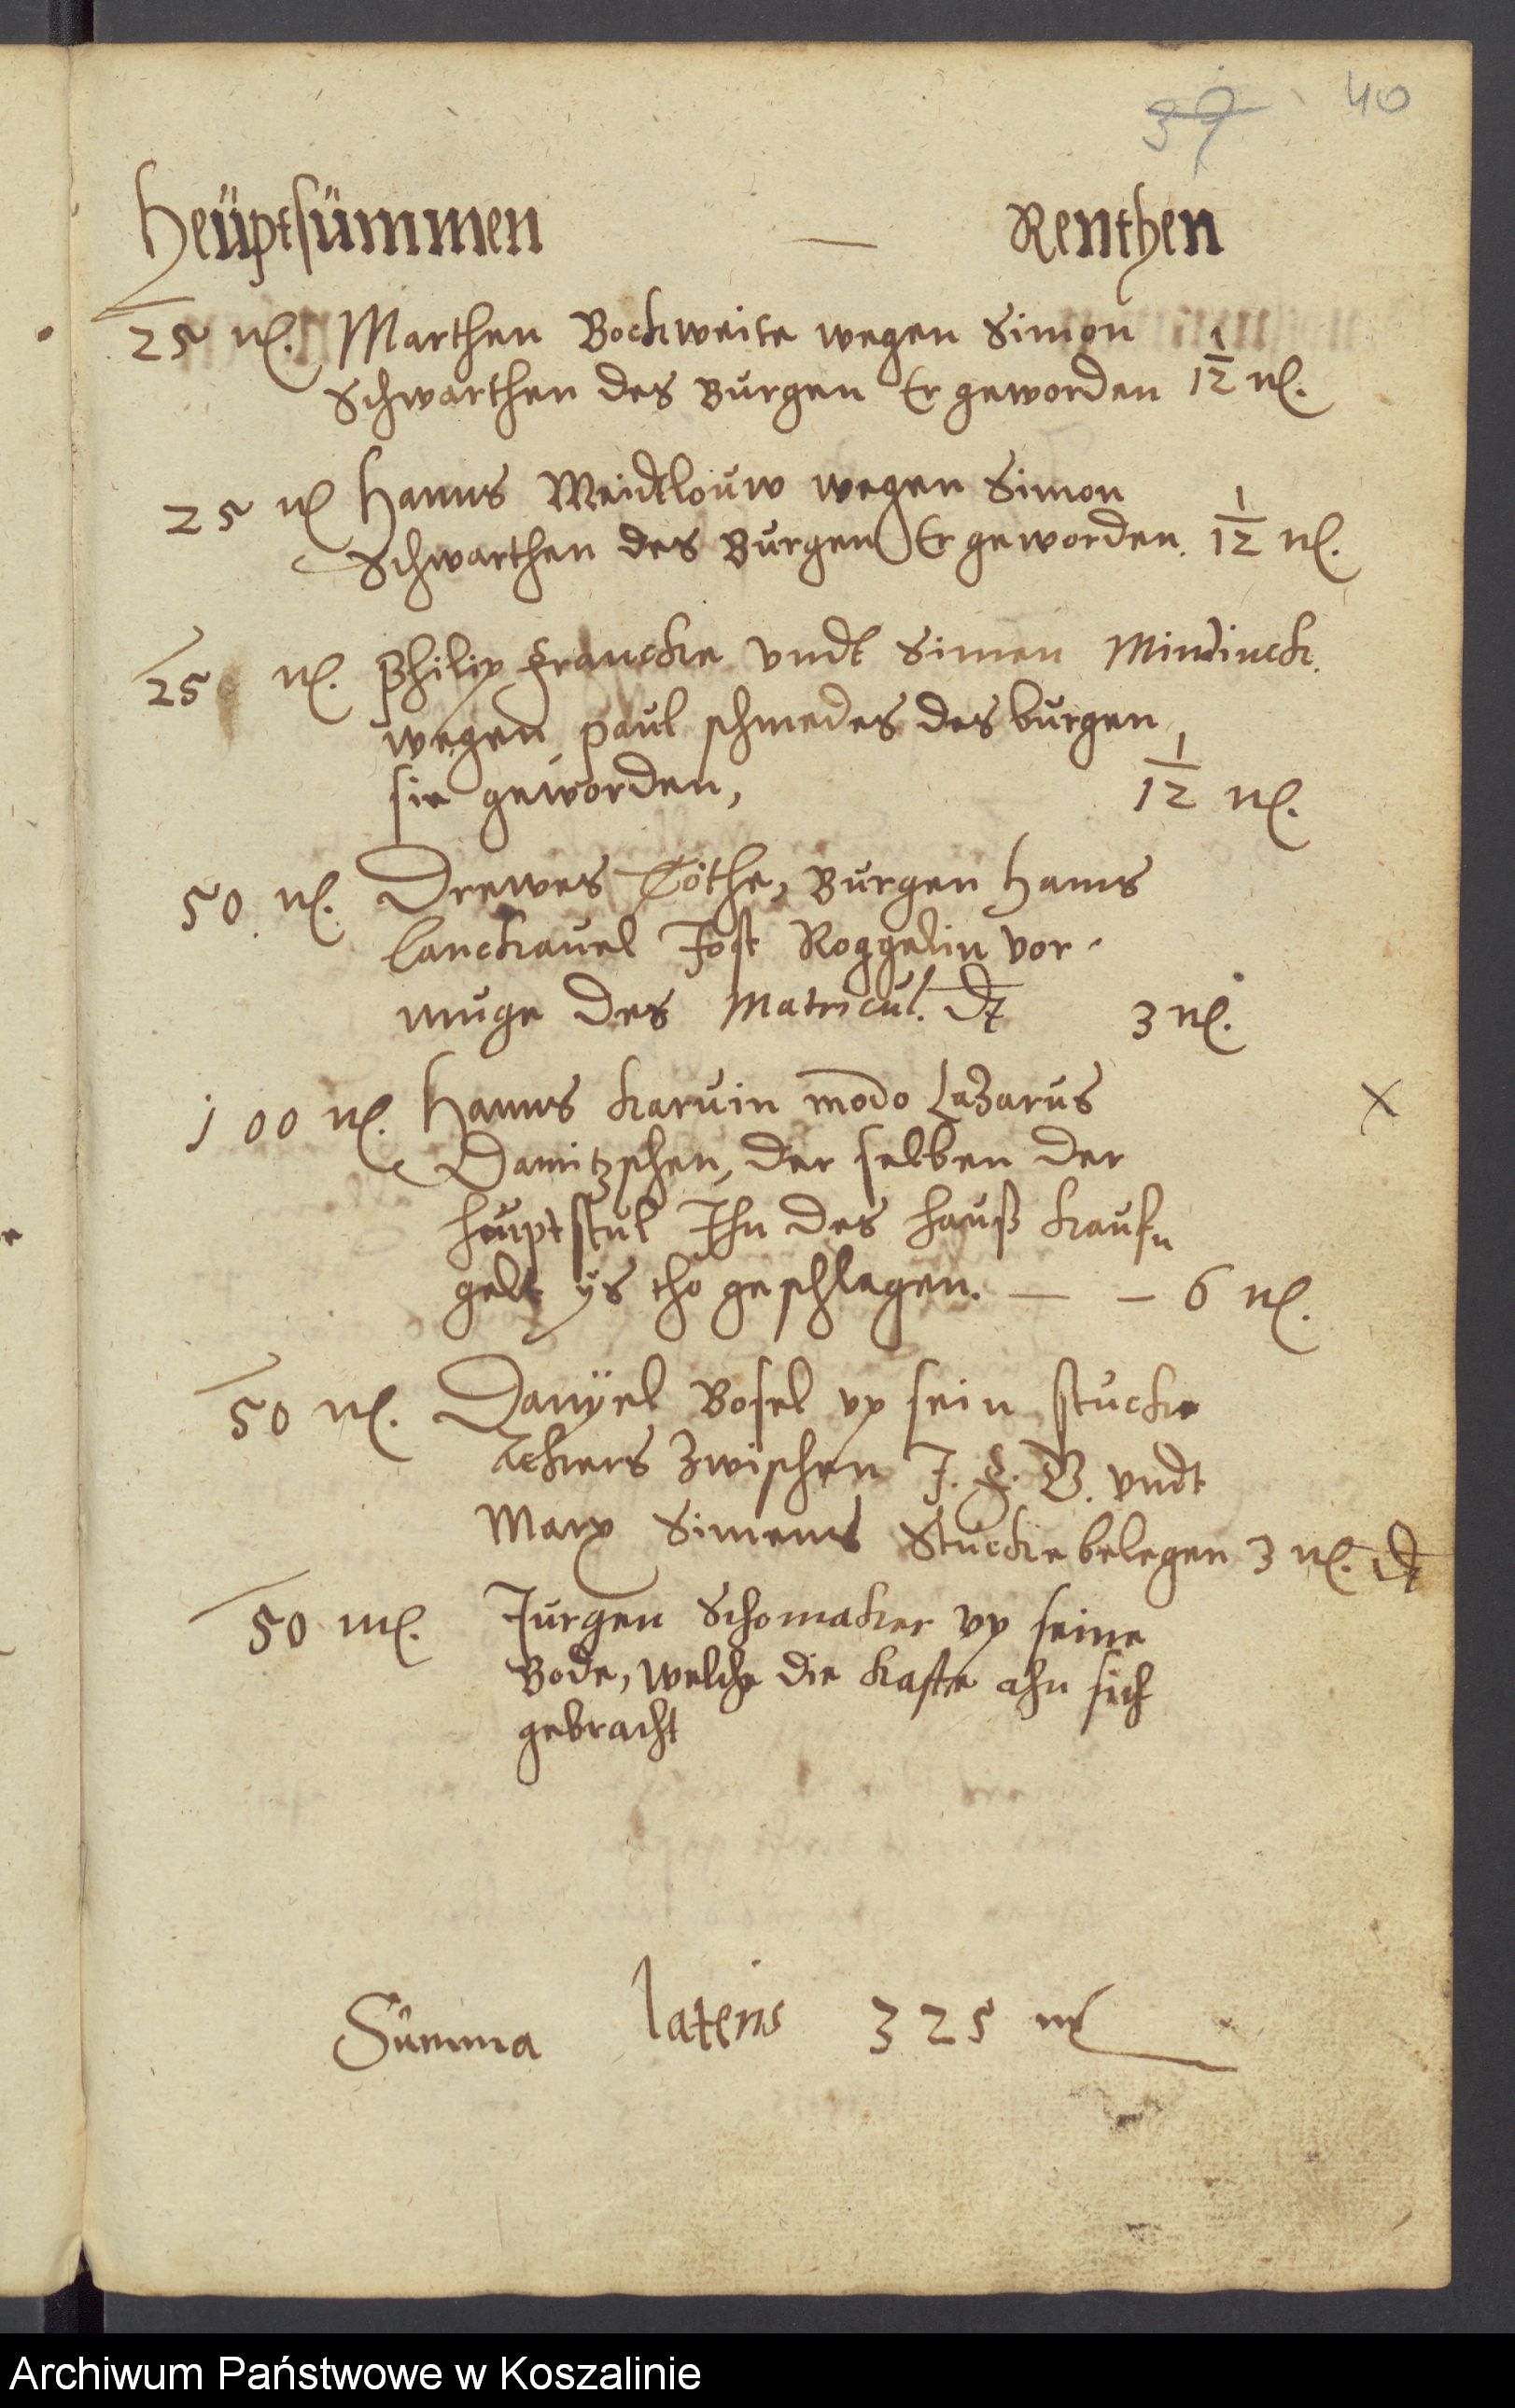 39 40
Heüptsümmen — Renthen
25 m. Marthen Bockweite wegen Simon
Schwarthen des Burgen Er geworden 1 1/2 m.
25 m Hanns Meidtlouw wegen Simon
Schwarthen des Burgen Er geworden. 1 1/2 m.
25 m. Philip Francke vndt Simen Mindinck.
wegen paul schmedes des burgen
sie geworden, 1 1/2 m.
50 m. Drewes Töthe, Burgen Hanns
Lanckauel Jost Roggelin vor-
muge des Matricul. dt 3 m.
100 m. Hanns Karuin modo Lazarus x
Damitzschen, der selben der
heuptstul Ihn des hauß Kaufn
gelt ys tho geschlagen. — – 6 m.
50 m. Danÿel Bosel vp sein stucke
Ackers zwischen J. F. G. vndt
Marx Simens Stucke belegen 3 m. dt
50 m. Jurgen Schomaker vp seine
Bode, welche die Kaste ahn sich
gebracht
Summa lateris 325 m
Archiwum Państwowe w Koszalinie